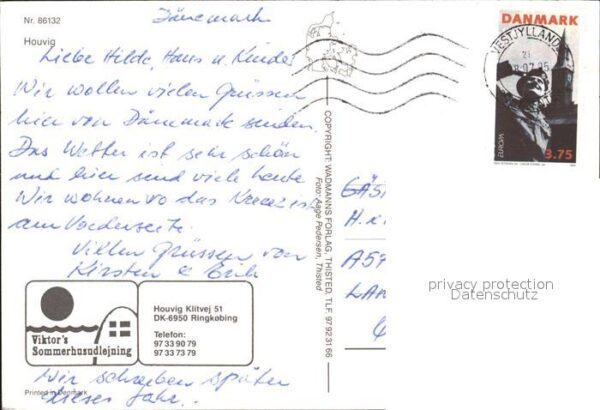 Nr. 86132
Houvig
Dänemark
Liebe Hilde, Hans u. Kinder
Wir wollen vielen Grüssen
hier von Dänemark senden.
Das Wetter ist sehr schön
und hier sind viele heute
Wir wohnen vo das Kreez ist
am Vorderseite.
Villen Grüssen von
Kirsten & Erik
Viktor's
Sommerhusudlejning
Houvig Klitvej 51
DK-6950 Ringkøbing
Telefon:
97 33 90 79
97 33 73 79
Wir schreiben später
dieses Jahr.
Printed in Denmark
COPYRIGHT: WADMANNS FORLAG, THISTED, TLF. 97 92 31 66
Foto: Aage Pedersen, Thisted
VESTJYLLAND
DANMARK
EUROPA
3.75
A57
LAN
privacy protection
Datenschutz